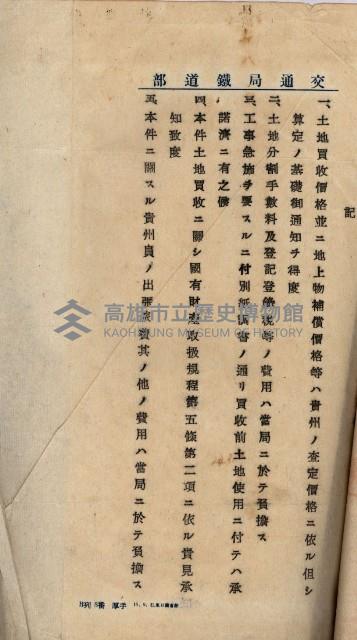 交通局鐵道部
記
一、土地買收價格並ニ地上物補償價格等ハ貴州ノ査定價格ニ依ル但シ
算定ノ基礎御通知ヲ得度
二、土地分割手數料及登記登錄稅等ノ費用ハ當局ニ於テ負擔ス
三、工事急施ヲ要スルニ付別紙寫ノ通リ買收前土地使用ニ付テハ承
諾濟ニ有之候
四、本件土地買收ニ關シ國有財產取扱規程第五條第二項ニ依ル貴見承
知致度
五、本件ニ關スル貴州員ノ出張旅費其ノ他ノ費用ハ當局ニ於テ負擔ス
高雄市立歷史博物館
KAOHSIUNG MUSEUM OF HISTORY
厚手